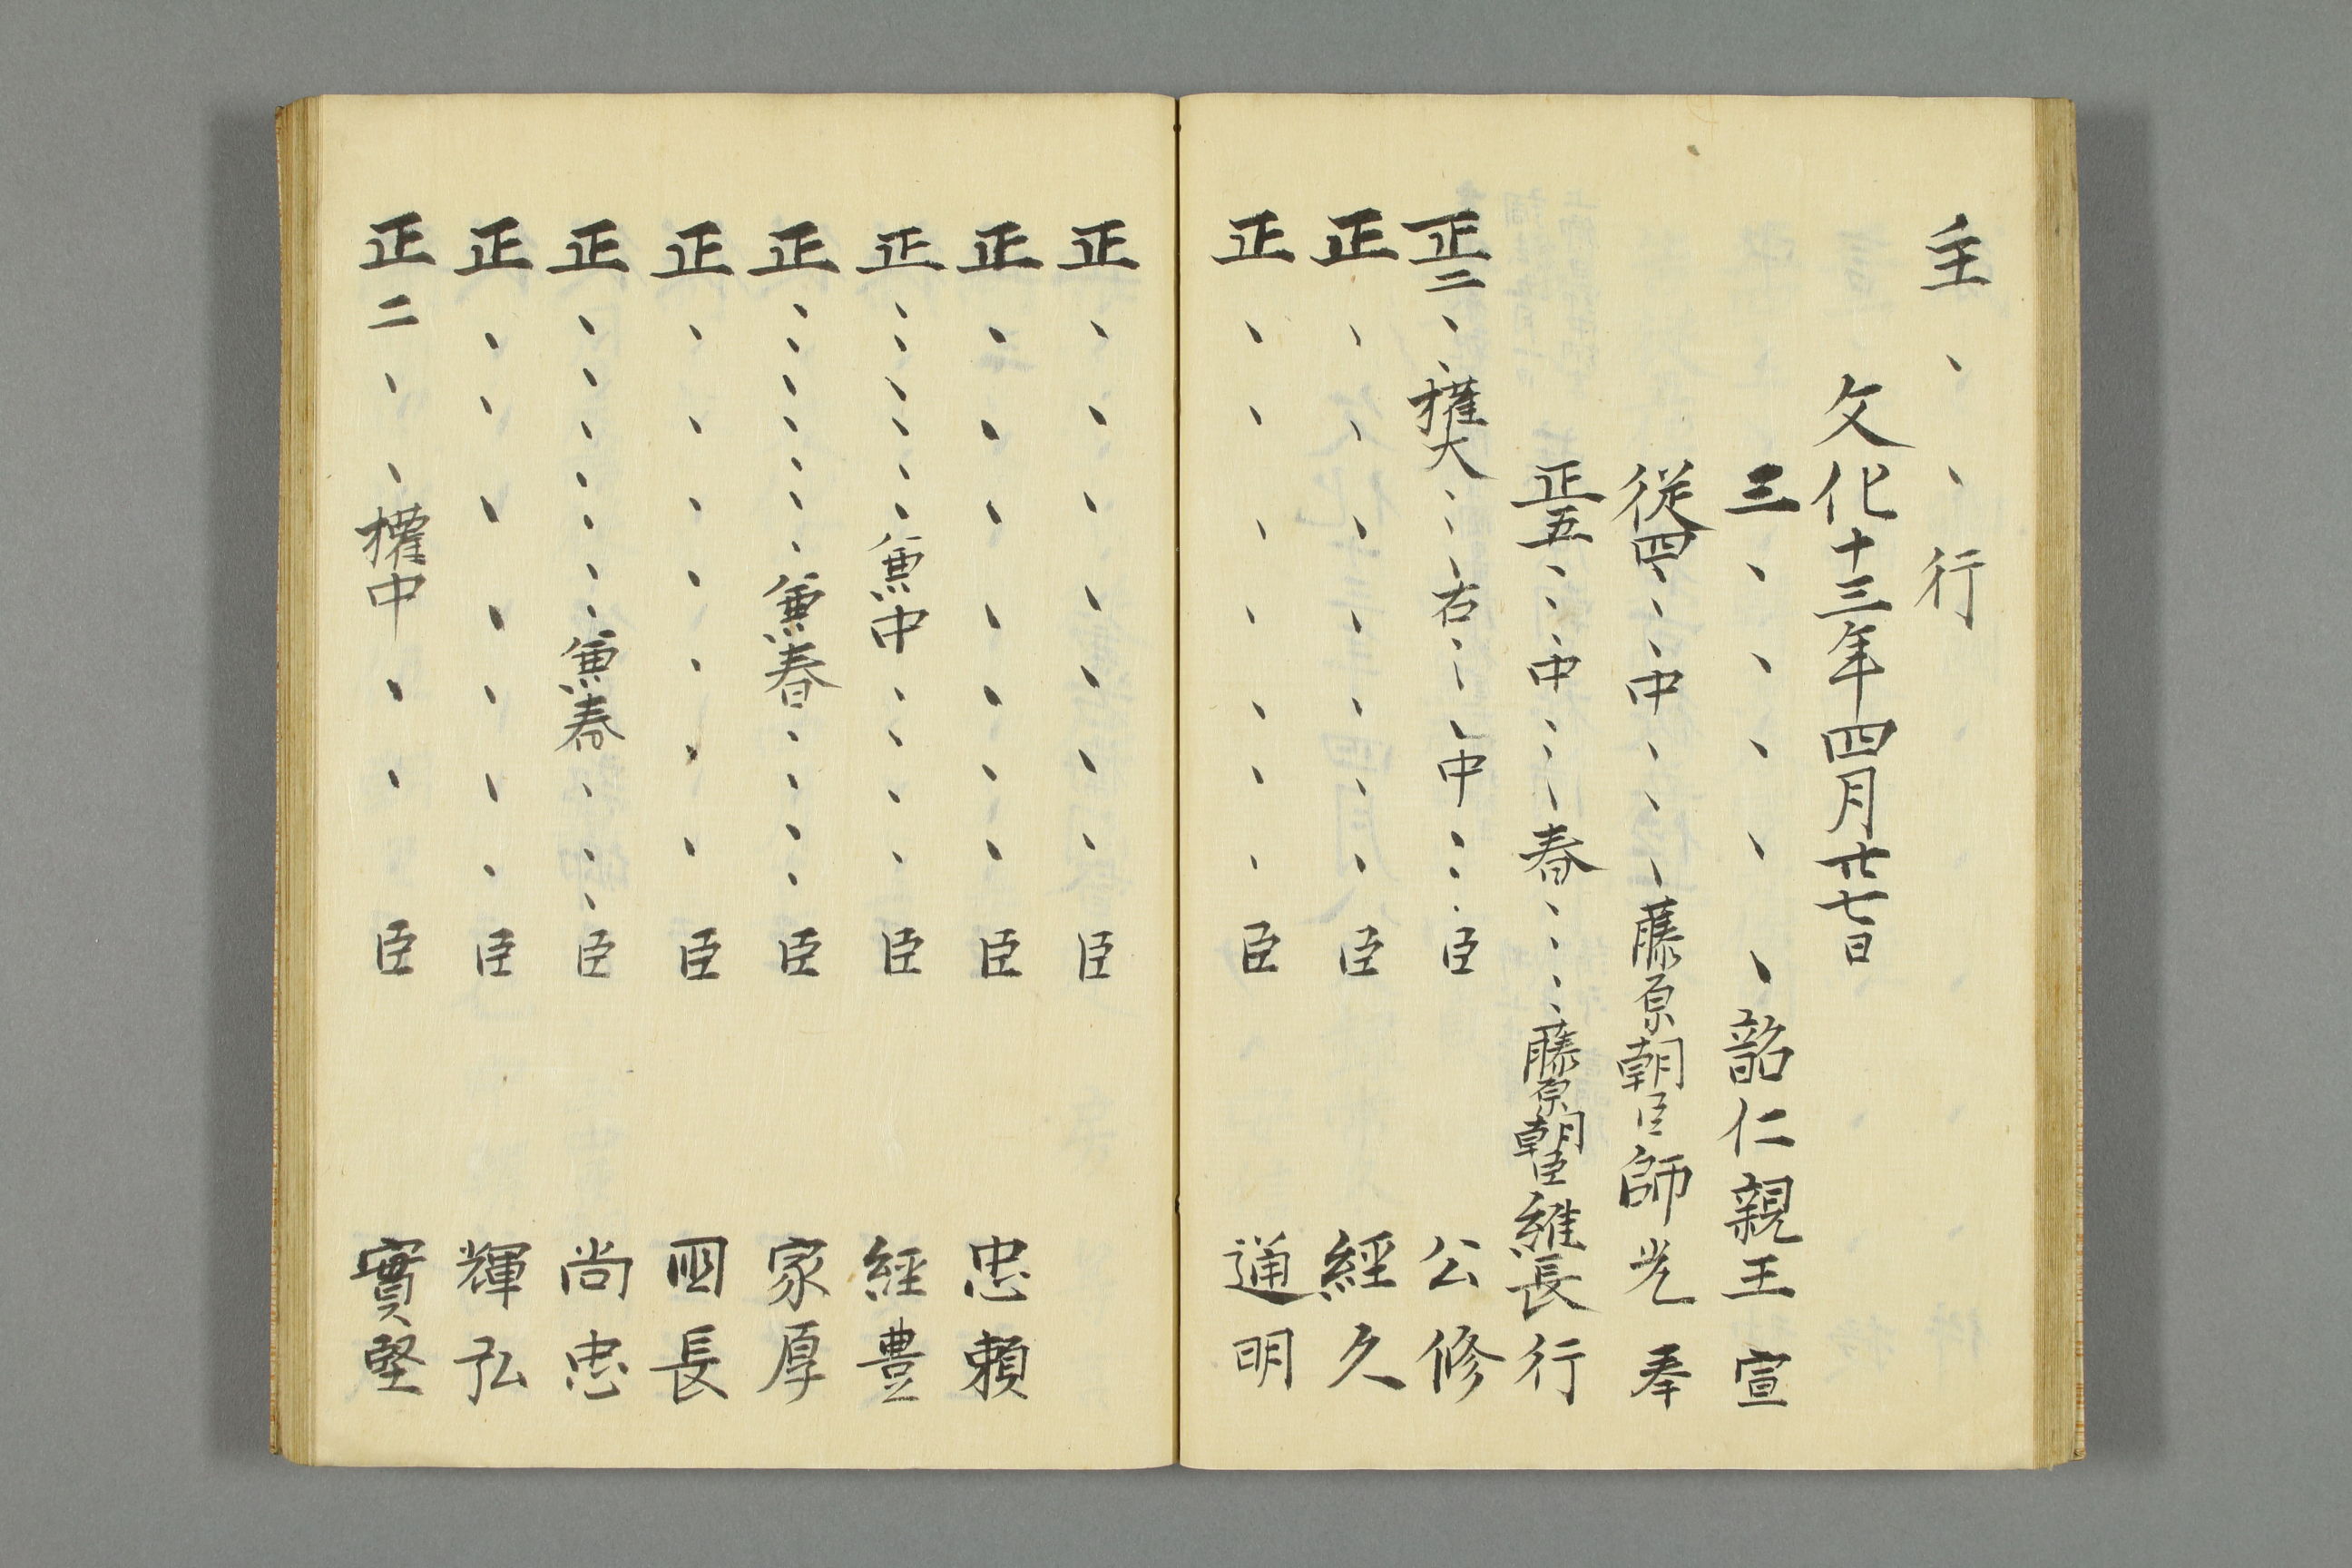 主、、行
文化十三年四月廿七日
三、、、、、韶仁親王宣
従四、、、中、、、藤原朝臣師光奉
正五、、中、、、春、、、、藤原朝臣維長行
正二、、權大、、、右、、、中、、、臣 公修
正、、、、、、、臣 經久
正、、、、、、、臣 通明
正、、、、、、、臣
正、、、、、、、臣 忠頼
正、、、、、、兼中、、、、臣 經豊
正、、、、、、、兼春、、、、臣 家厚
正、、、、、、、臣 長
正、、、、、、、兼春、、、臣 尚忠
正、、、、、、、臣 輝弘
正二、、權中、、臣 實堅